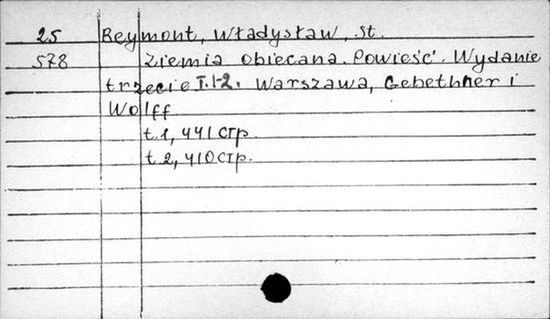 25 Reymont, Władysław, St.
578 Ziemia obiecana. Powieść. Wydanie
trzecie T.1-2. Warszawa, Gebethner i
Wolff
t.1, 441 стр.
t.2, 410 стр.